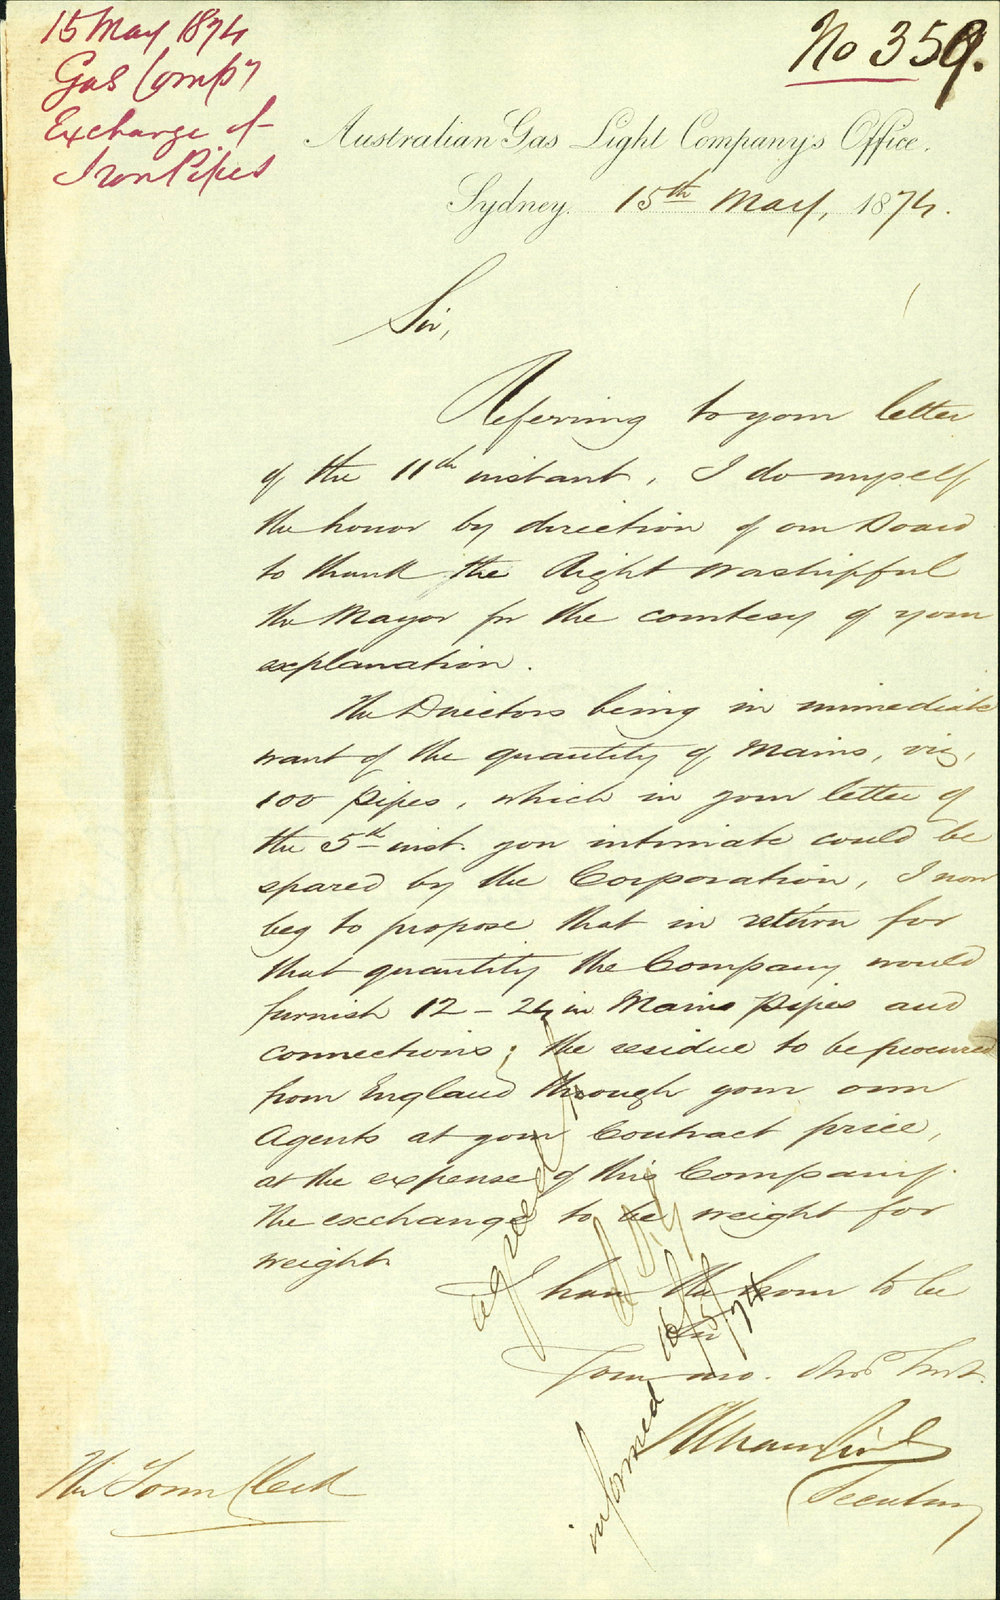 15 May 1874
Gas Compy
Exchange of
Iron Pipes
No 359.
Australian Gas Light Company's Office.
Sydney. 15th May, 1874.
Sir,
Referring to your letter
of the 11th instant, I do myself
the honor by direction of our Board
to thank the Right Worshipful
the Mayor for the courtesy of your
explanation.
The Directors being in immediate
want of the quantity of Mains, viz,
100 pipes, which in your letter of
the 5th inst. you intimate could be
spared by the Corporation, I now
beg to propose that in return for
that quantity the Company would
furnish 12 - 24 in Mains Pipes and
connections; the residue to be procured
from England through your own
Agents at your Contract price,
at the expense of this Company.
The exchange to be weight for
weight
I have the honor to be
Sir
Your mo. Obd Servt.
Secretary
The Town Clerk
agreed
16/5/74
informed